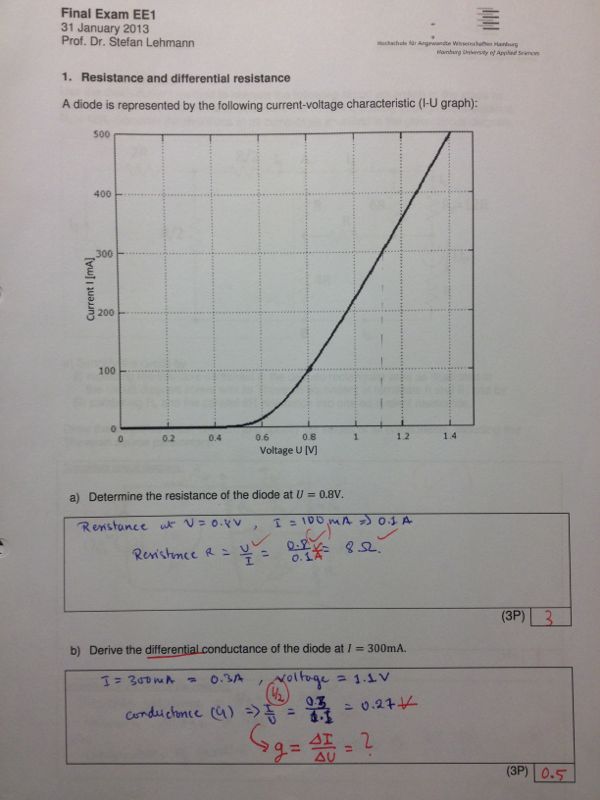 Final Exam EE1
31 January 2013
Prof. Dr. Stefan Lehmann
Hochschule für Angewandte Wissenschaften Hamburg
Hamburg University of Applied Sciences
1. Resistance and differential resistance
A diode is represented by the following current-voltage characteristic (I-U graph):
500
400
300
200
100
0
Current I [mA]
0 0.2 0.4 0.6 0.8 1 1.2 1.4
Voltage U [V]
a) Determine the resistance of the diode at U = 0.8V.
Resistance at U = 0.8V , I = 100 mA => 0.1 A
Resistance R = U/I = 0.8/0.1 V/A = 8 Ω.
(3P) 3
b) Derive the differential conductance of the diode at I = 300mA.
I = 300mA = 0.3A , voltage = 1.1V
1/2
conductance (G) => I/U = 0.3/1.1 = 0.27
g = ΔI/ΔU = ?
(3P) 0.5